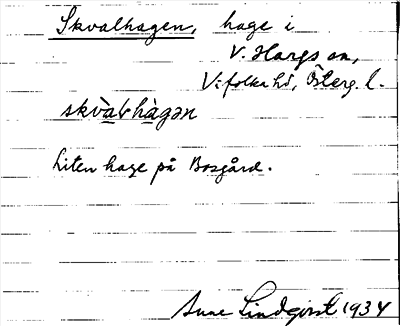 Skvalhagen, hage i
V. Hargs sn,
Vifolka hd, Österg. l.
skvàlhàgən
Liten hage på Bosgård.
Sune Lindqvist 1934